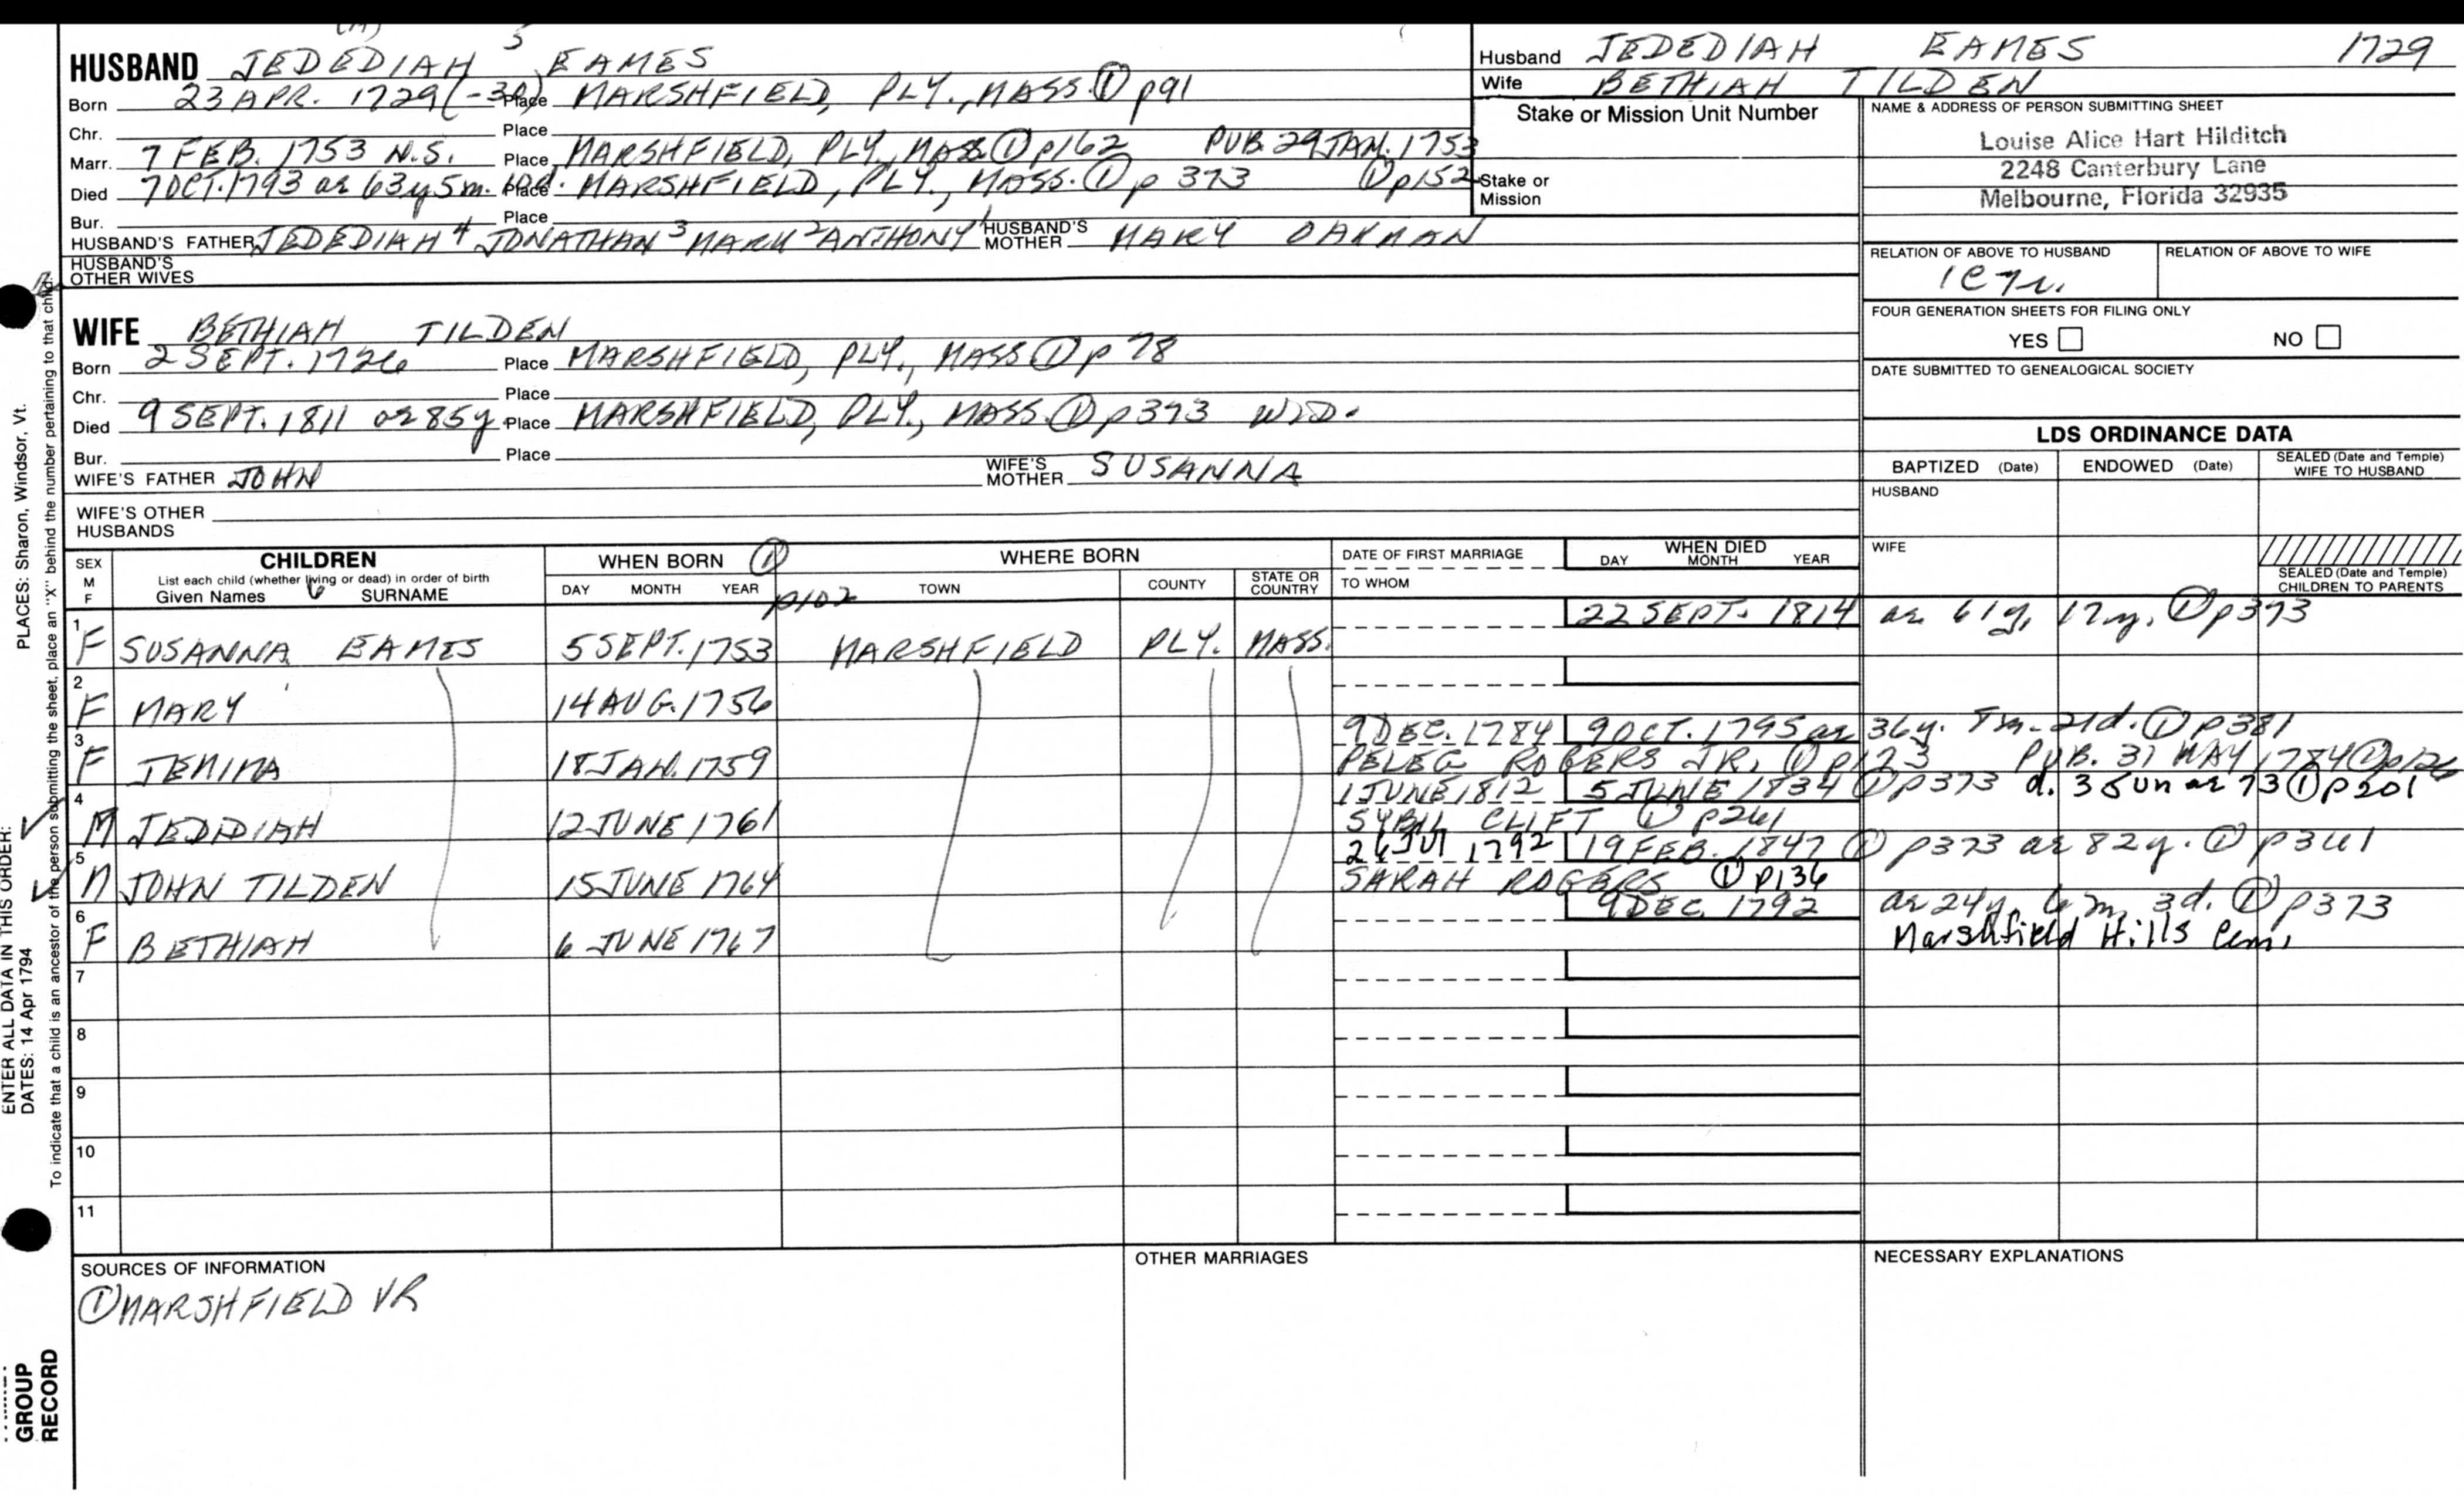 HUSBAND JEDEDIAH 5 EAMES
Born 23 APR. 1729 (-30) Place MARSHFIELD, PLY., MASS. ① p91
Chr. Place
Marr. 7 FEB. 1753 N.S. Place MARSHFIELD, PLY., MASS. ① p162 PUB. 29 JAN. 1753
Died 7 OCT. 1793 ae 63y 5m. 10d. Place MARSHFIELD, PLY., MASS. ① p 373 ① p152
Bur. Place
HUSBAND'S FATHER JEDEDIAH 4 JONATHAN 3 MARK 2 ANTHONY 1 HUSBAND'S MOTHER MARY OAKMAN
HUSBAND'S OTHER WIVES
WIFE BETHIAH TILDEN
Born 2 SEPT. 1726 Place MARSHFIELD, PLY., MASS ① p 78
Chr. Place
Died 9 SEPT. 1811 ae 85y Place MARSHFIELD, PLY., MASS. ① p373 WID.
Bur. Place
WIFE'S FATHER JOHN WIFE'S MOTHER SUSANNA
WIFE'S OTHER HUSBANDS
Husband JEDEDIAH EAMES 1729
Wife BETHIAH TILDEN
Stake or Mission Unit Number
Stake or Mission
NAME & ADDRESS OF PERSON SUBMITTING SHEET
Louise Alice Hart Hilditch
2248 Canterbury Lane
Melbourne, Florida 32935
RELATION OF ABOVE TO HUSBAND RELATION OF ABOVE TO WIFE
FOUR GENERATION SHEETS FOR FILING ONLY
YES NO
DATE SUBMITTED TO GENEALOGICAL SOCIETY
LDS ORDINANCE DATA
BAPTIZED (Date) ENDOWED (Date) SEALED (Date and Temple) WIFE TO HUSBAND
HUSBAND
WIFE
SEALED (Date and Temple) CHILDREN TO PARENTS
SEX M F CHILDREN WHEN BORN ① WHERE BORN DATE OF FIRST MARRIAGE WHEN DIED
List each child (whether living or dead) in order of birth
Given Names 6 SURNAME DAY MONTH YEAR p102 TOWN COUNTY STATE OR COUNTRY TO WHOM DAY MONTH YEAR
22 SEPT. 1814 ae 61y. 17 ① p373
1 F SUSANNA EAMES 5 SEPT. 1753 MARSHFIELD PLY. MASS.
2 F MARY 14 AUG. 1756
9 DEC. 1784 9 OCT. 1795 ae 36y. 8m. 21d. ① p381
3 F JEMIMA 18 JAN. 1759 PELEG ROGERS JR. ① p123 PUB. 31 MAY 1784 ① p126
1 JUNE 1812 5 JUNE 1834 ① p373 d. 3 Jun ae 73 ① p201
4 M JEDIDIAH 12 JUNE 1761 SYBIL CLIFT ① p241
26 JUL 1792 19 FEB. 1847 ① p373 ae 82y. ① p341
5 M JOHN TILDEN 15 JUNE 1764 SARAH ROGERS ① p136
9 DEC. 1792 ae 24y. 6m. 3d. ① p373
6 F BETHIAH 6 JUNE 1767 Marshfield Hills Cem.
7
8
9
10
11
SOURCES OF INFORMATION
① MARSHFIELD VR
OTHER MARRIAGES
NECESSARY EXPLANATIONS
PLACES: Sharon, Windsor, Vt.
ENTER ALL DATA IN THIS ORDER:
DATES: 14 Apr 1794
To indicate that a child is an ancestor of the person submitting the sheet, place an "X" behind the number pertaining to that child.
GROUP
RECORD